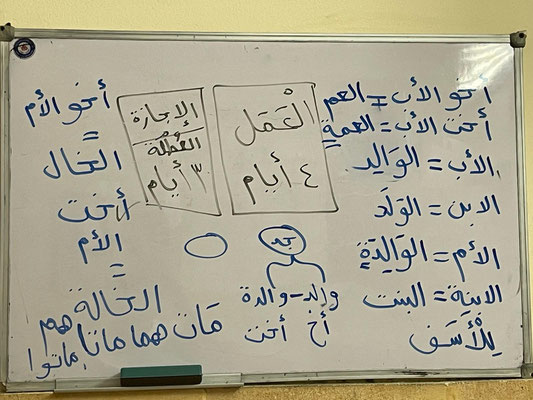 أخو الأب = العم
أخت الأب = العمة
الأب = الوَالِد
الابن = الوَلَد
الأم = الوَالِدَة
الابنة = البنت
لِلْأَسَف
العَمَل
٤ أيام
الإجازة
العُطْلَة
٣ أيام
جد
والد - والدة
أخ أخت
مَاتَ هما ماتا هم ماتوا
أخو الأم
=
الخال
أخت
الأم
=
الخالة